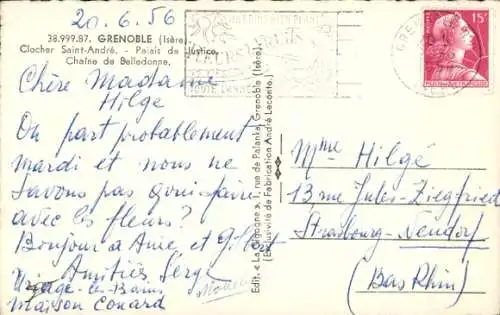 20.6.56
38.999.87. GRENOBLE (Isère)
Clocher Saint-André. - Palais de Justice.
Chaîne de Belledonne.
Chère Madame
Hilge
On part probablement
mardi et nous ne
savons pas quoi faire
avec les fleurs?
Bonjour à Anie et Gilbert
Amitiés Serge
Uriage-les-Bains
Maison Conard
Edit. « La Cigogne », 1, rue de Palanka, Grenoble (Isère).
(Exclusivité de Fabrication André Leconte)
15F
Mme Hilgé
13, rue Jules-Ziegfried
Strasbourg-Neudorf
(Bas Rhin)